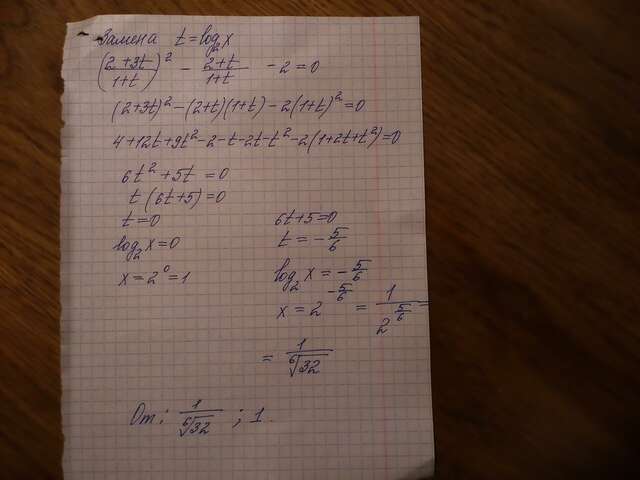 Замена t = log₂x
((2+3t)/(1+t))² - (2+t)/(1+t) - 2 = 0
(2+3t)² - (2+t)(1+t) - 2(1+t)² = 0
4+12t+9t²-2-t-2t-t²-2(1+2t+t²)=0
6t²+5t = 0
t(6t+5)=0
t=0 6t+5=0
log₂x=0 t = -5/6
x=2⁰=1 log₂x = -5/6
x = 2^(-5/6) = 1/2^(5/6) =
= 1/⁶√32
От: 1/⁶√32 ; 1.